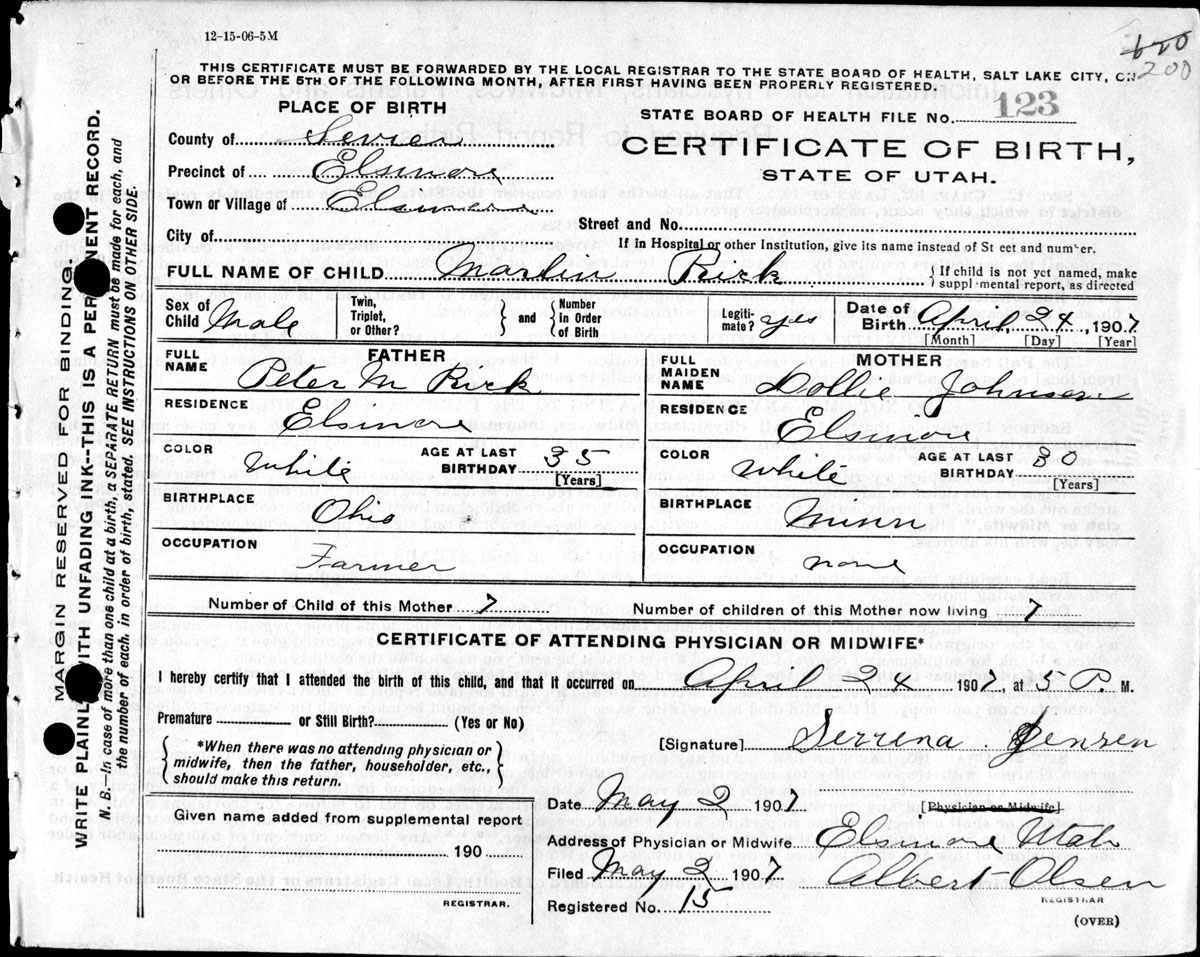 620
200
12-15-06-5M
THIS CERTIFICATE MUST BE FORWARDED BY THE LOCAL REGISTRAR TO THE STATE BOARD OF HEALTH, SALT LAKE CITY, ON
OR BEFORE THE 5TH OF THE FOLLOWING MONTH, AFTER FIRST HAVING BEEN PROPERLY REGISTERED.
PLACE OF BIRTH
STATE BOARD OF HEALTH FILE NO. 123
County of Sevier
CERTIFICATE OF BIRTH,
Precinct of Elsinore
STATE OF UTAH.
Town or Village of Elsinore
Street and No.
City of
If in Hospital or other Institution, give its name instead of St eet and number.
FULL NAME OF CHILD Marlin Rirk
If child is not yet named, make
suppl mental report, as directed
Sex of Child Male
Twin, Triplet, or Other?
and
Number in Order of Birth
Legiti-mate? yes
Date of Birth April, 24, 1907
[Month] [Day] [Year]
FATHER
FULL NAME Peter M Rirk
RESIDENCE Elsinore
COLOR White
AGE AT LAST BIRTHDAY 35
[Years]
BIRTHPLACE Ohio
OCCUPATION Farmer
MOTHER
FULL MAIDEN NAME Dollie Johnson
RESIDENCE Elsinore
COLOR White
AGE AT LAST BIRTHDAY 30
[Years]
BIRTHPLACE Minn
OCCUPATION none
Number of Child of this Mother 7
Number of children of this Mother now living 7
CERTIFICATE OF ATTENDING PHYSICIAN OR MIDWIFE*
I hereby certify that I attended the birth of this child, and that it occurred on April 24 1907, at 3 P. M.
Premature or Still Birth? (Yes or No)
*When there was no attending physician or
midwife, then the father, householder, etc.,
should make this return.
[Signature] Serrena Jensen
[Physician or Midwife]
Given name added from supplemental report
190
REGISTRAR.
Date May 2 1907
Address of Physician or Midwife Elsinore Utah
Filed May 2 1907 Albert Olsen
REGISTRAR
Registered No. 15
(OVER)
MARGIN RESERVED FOR BINDING
WRITE PLAINLY WITH UNFADING INK--THIS IS A PERMANENT RECORD.
N. B.—In case of more than one child at a birth, a SEPARATE RETURN must be made for each, and
the number of each, in order of birth, stated. SEE INSTRUCTIONS ON OTHER SIDE.